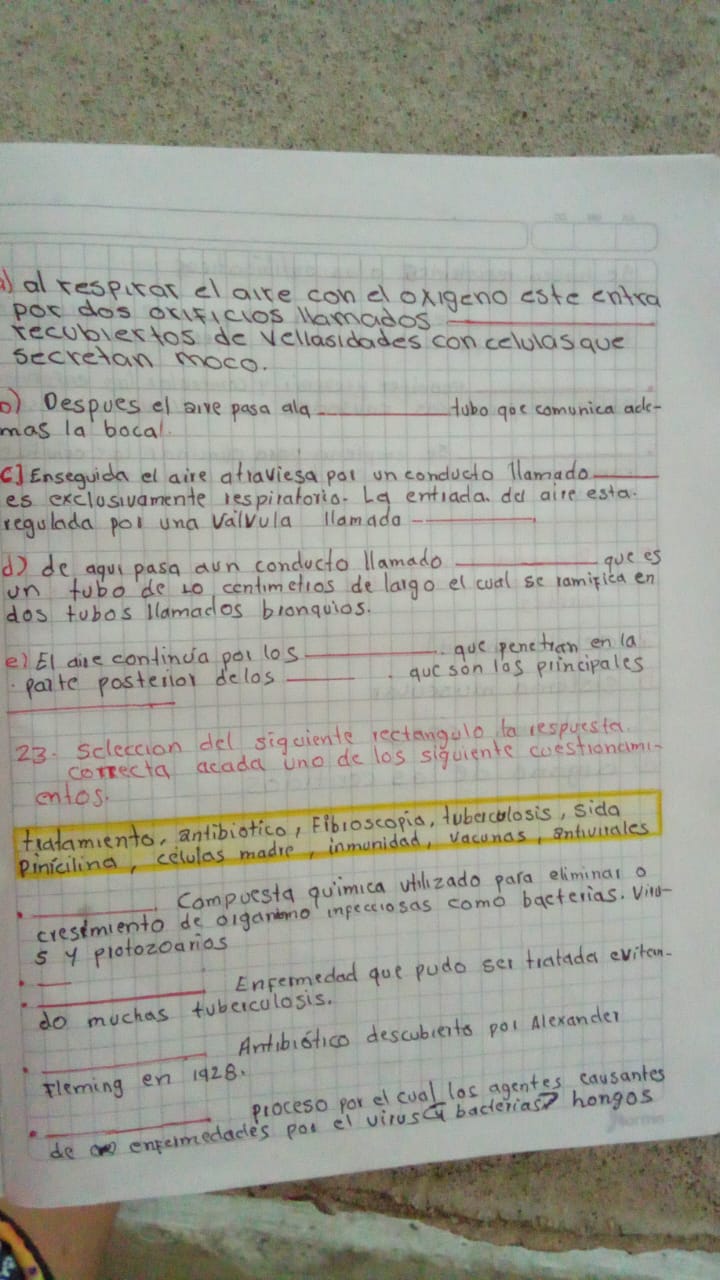 a) al respirar el aire con el oxigeno este entra
por dos orificios llamados
recubiertos de vellasidades con celulas que
secretan moco.
b) Despues el aire pasa ala tubo que comunica ade-
mas la boca.
c) Enseguida el aire atraviesa por un conducto llamado
es exclusivamente respiratorio. La entrada. del aire esta.
regulada por una válvula llamada
d) de aqui pasa aun conducto llamado que es
un tubo de 10 centimetros de largo el cual se ramifica en
dos tubos llamados bronquios.
e) El aire continúa por los que penetran en la
parte posterior delos que son los principales
23. Seleccion del siguiente rectangulo la respuesta
correcta acada uno de los siguiente cuestionami-
entos.
tratamiento, antibiotico, Fibroscopia, tuberculosis, sida
Pinicilina, células madre, inmunidad, vacunas, antivirales
Compuesta química utilizado para eliminar o
cresimiento de organismo infecciosas como bacterias. Viru-
s y protozoarios
Enfermedad que pudo ser tratada evitan-
do muchas tuberculosis.
Antibiótico descubierto por Alexander
Fleming en 1928.
proceso por el cual los agentes causantes
de enfermedades por el virus y bacterias hongos
Norma